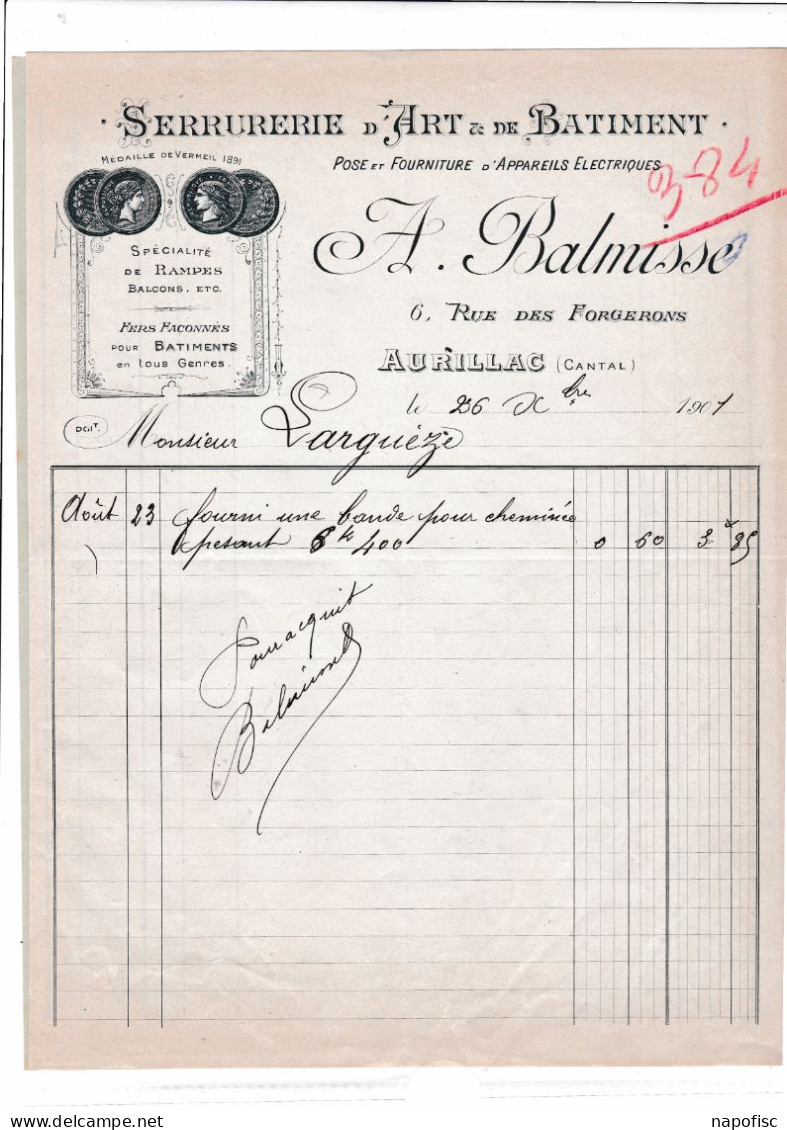 SERRURERIE D'ART & DE BATIMENT
MÉDAILLE DE VERMEIL 1891
POSE ET FOURNITURE D'APPAREILS ELECTRIQUES
384
A. Balmisse
SPÉCIALITÉ
DE RAMPES
BALCONS, ETC.
FERS FACONNÉS
POUR BATIMENTS
en tous Genres.
6, RUE DES FORGERONS
AURILLAC (CANTAL)
le 26 Xbre 1901
DOIT
Monsieur Larguèze
Août 23 fourni une bande pour cheminée
pesant 6 k 400 0 60 3 85
Pour acquit
napofisc